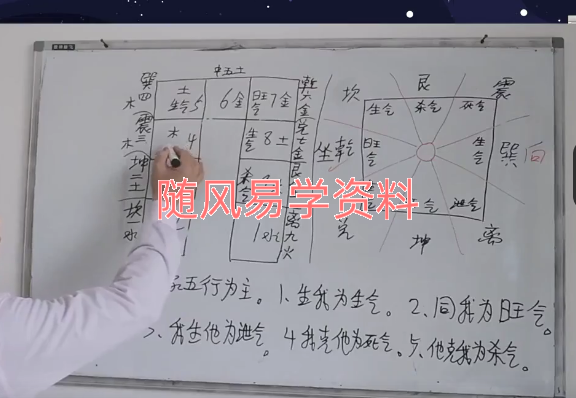 中五土
巽四木
土
生气5
6金
旺气7金
乾六金
震三木
木4
生气8土
兑七金
坤二土
艮
坎一水
1水
离九火
坎
艮
震
生气
杀气
死气
坐乾
旺气
生气
巽向
气
泄气
兑
坤
离
随风易学资料
五行为主。1、生我为生气。2、同我为旺气。
我生他为泄气。4我克他为死气。5、他克我为杀气